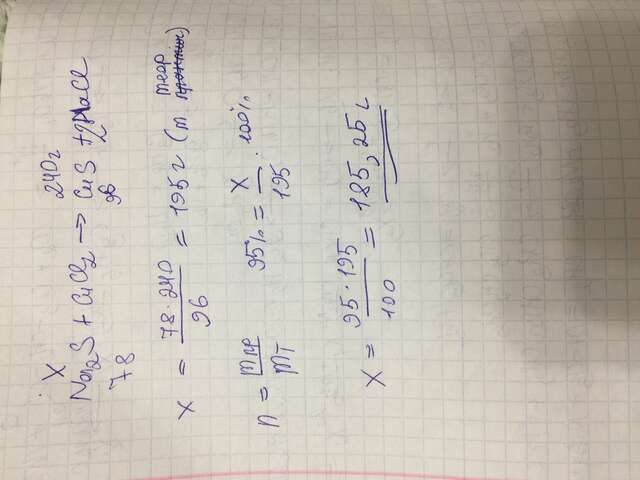 X 240г
Na₂S + CuCl₂ → CuS + 2NaCl
78 96
x = 78·240 / 96 = 195 г (m теор практич)
n = mпр / mт 95% = x / 195 · 100%
x = 95·195 / 100 = 185,25 г